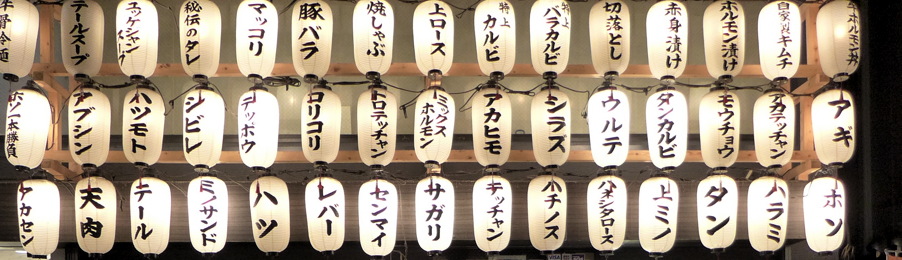 牛骨冷麺
テールスープ
ユッケジャンスープ
秘伝のタレ
マッコリ
豚バラ
焼しゃぶ
上ロース
特上カルビ
特上バラカルビ
切落とし
赤身漬け
ホルモン漬け
自家製キムチ
牛ホルモン丼
ホソ一本勝負
アブシン
ハツモト
シビレ
テッポウ
コリコリ
トロテッチャン
ミックスホルモン
アカヒモ
シラズ
ウルテ
タンカルビ
モウチョウ
タカテッチャン
アギ
アカセン
天肉
テール
ミノサンド
ハツ
レバー
センマイ
サガリ
キッチャン
ハチノス
ハネシタロース
上ミノ
タン
ハラミ
ホソ